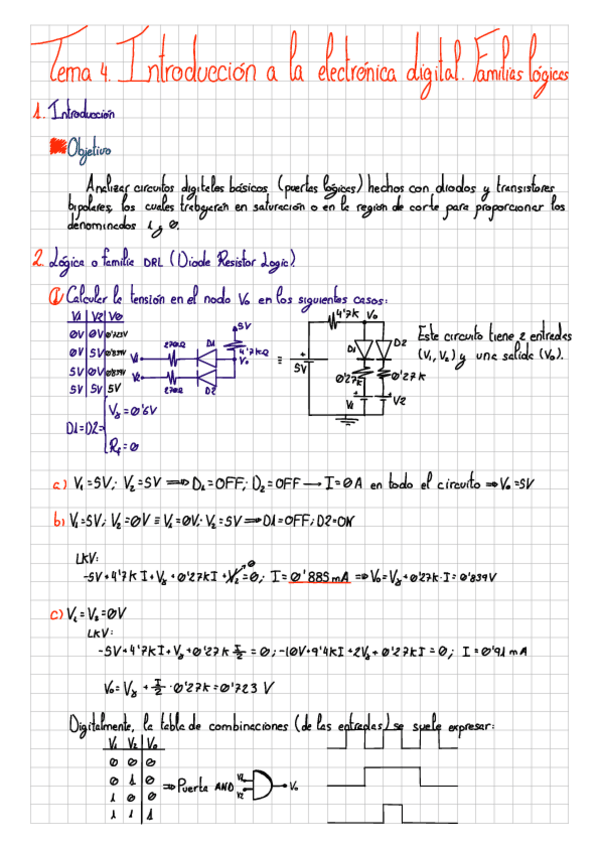 Tema 4. Introducción a la electrónica digital. Familias lógicas
1. Introducción
Objetivo
Analizar circuitos digitales básicos (puertas lógicas) hechos con diodos y transistores
bipolares, los cuales trabajaran en saturación o en la region de corte para proporcionar los
denominados 1 y 0.
2. Lógica o familia DRL (Diode Resistor Logic)
① Calcular la tensión en el nodo Vo en los siguientes casos:
V1 V2 Vo
0V 0V 0'723V
0V 5V 0'839V
5V 0V 0'839V
5V 5V 5V
D1=D2=
Vγ=0'6V
Rf=0
V1 270Ω D1 5V
4'7KΩ
Vo
V2 270Ω D2
≡
4'7K Vo
5V D1 D2
0'27K 0'27K
V1 V2
Este circuito tiene 2 entradas
(V1, V2) y una salida (Vo).
a) V1=5V; V2=5V ⟹ D1=OFF; D2=OFF ⟶ I=0A en todo el circuito ⟹ Vo=5V
b) V1=5V; V2=0V ≡ V1=0V; V2=5V ⟹ D1=OFF; D2=ON
LKV:
-5V+4'7KI+Vγ+0'27KI+V2=0; I=0'885mA ⟹ Vo=Vγ+0'27K·I=0'839V
0
c) V1=V2=0V
LKV:
-5V+4'7KI+Vγ+0'27K I/2=0; -10V+9'4KI+2Vγ+0'27KI=0; I=0'91mA
Vo=Vγ+I/2·0'27K=0'723V
Digitalmente, la tabla de combinaciones (de las entradas) se suele expresar:
V1 V2 Vo
0 0 0
0 1 0
1 0 0
1 1 1
⟹ Puerta AND V1 V2 Vo